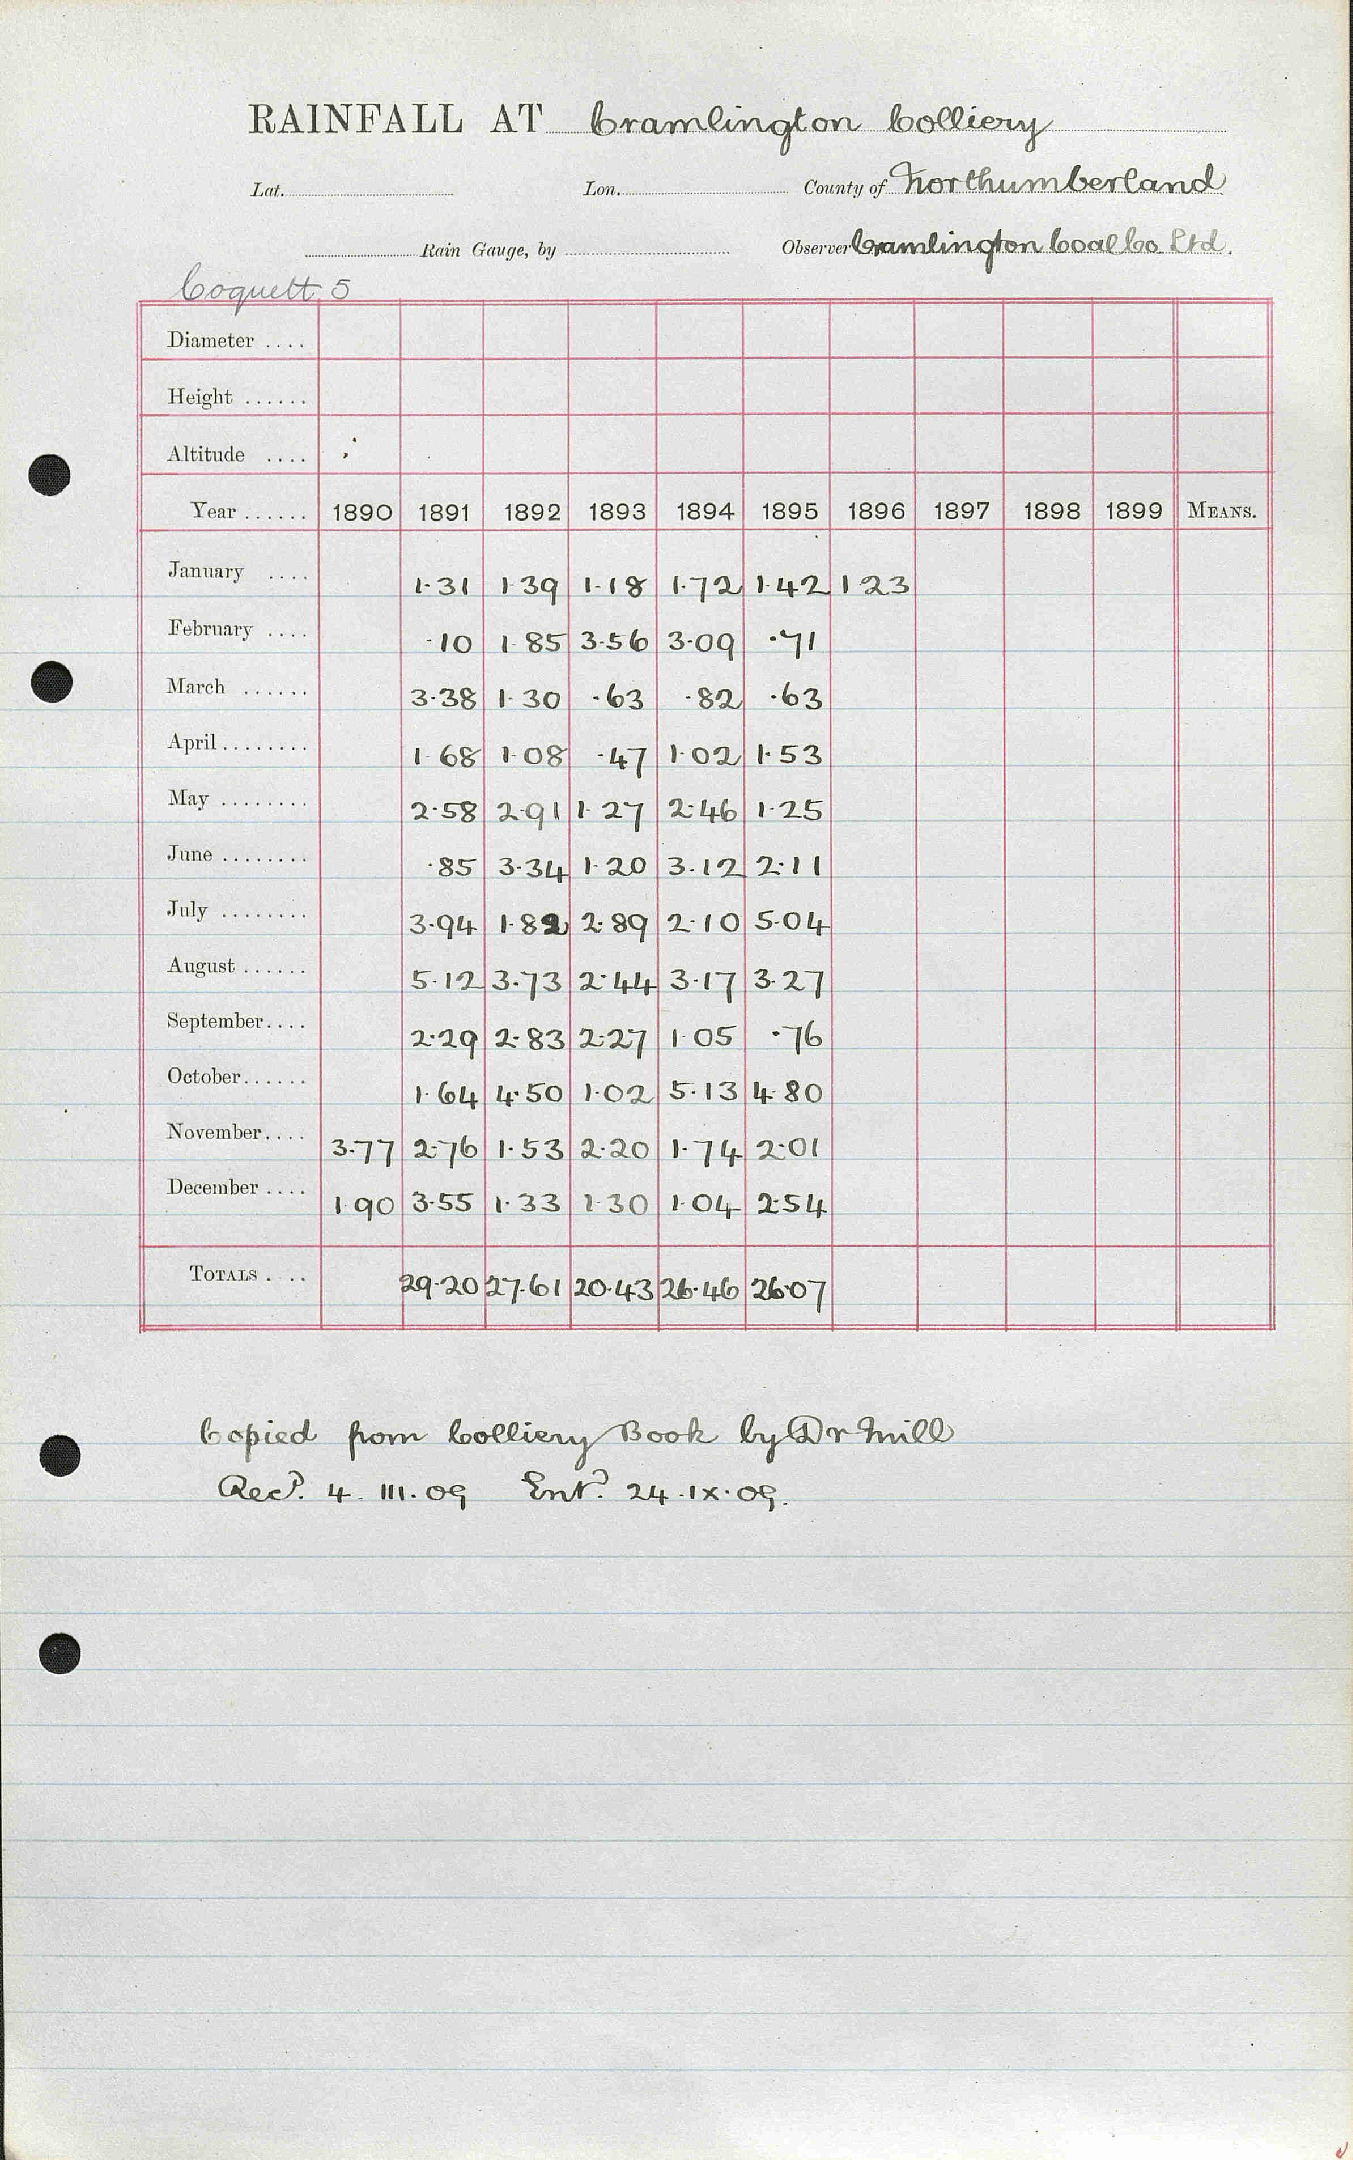 RAINFALL AT Cramlington Colliery
Lat. Lon. County of Northumberland
Rain Gauge, by Observer Cramlington Coal Co. Ltd.
Coquett 5
Diameter ....
Height ......
Altitude ....
Year ...... 1890 1891 1892 1893 1894 1895 1896 1897 1898 1899 MEANS.
January .... 1.31 1.39 1.18 1.72 1.42 1 23
February .... .10 1.85 3.56 3.09 .71
March ...... 3.38 1.30 .63 .82 .63
April ........ 1.68 1.08 .47 1.02 1.53
May ........ 2.58 2.91 1.27 2.46 1.25
June ........ .85 3.34 1.20 3.12 2.11
July ........ 3.94 1.82 2.89 2.10 5.04
August ...... 5.12 3.73 2.44 3.17 3.27
September.... 2.29 2.83 2.27 1.05 .76
October...... 1.64 4.50 1.02 5.13 4.80
November.... 3.77 2.76 1.53 2.20 1.74 2.01
December .... 1.90 3.55 1.33 1.30 1.04 2.54
TOTALS . .. 29.20 27.61 20.43 26.46 26.07
Copied from Colliery Book by Dr Mill
Recd. 4. III. 09 Entd. 24.IX.09.